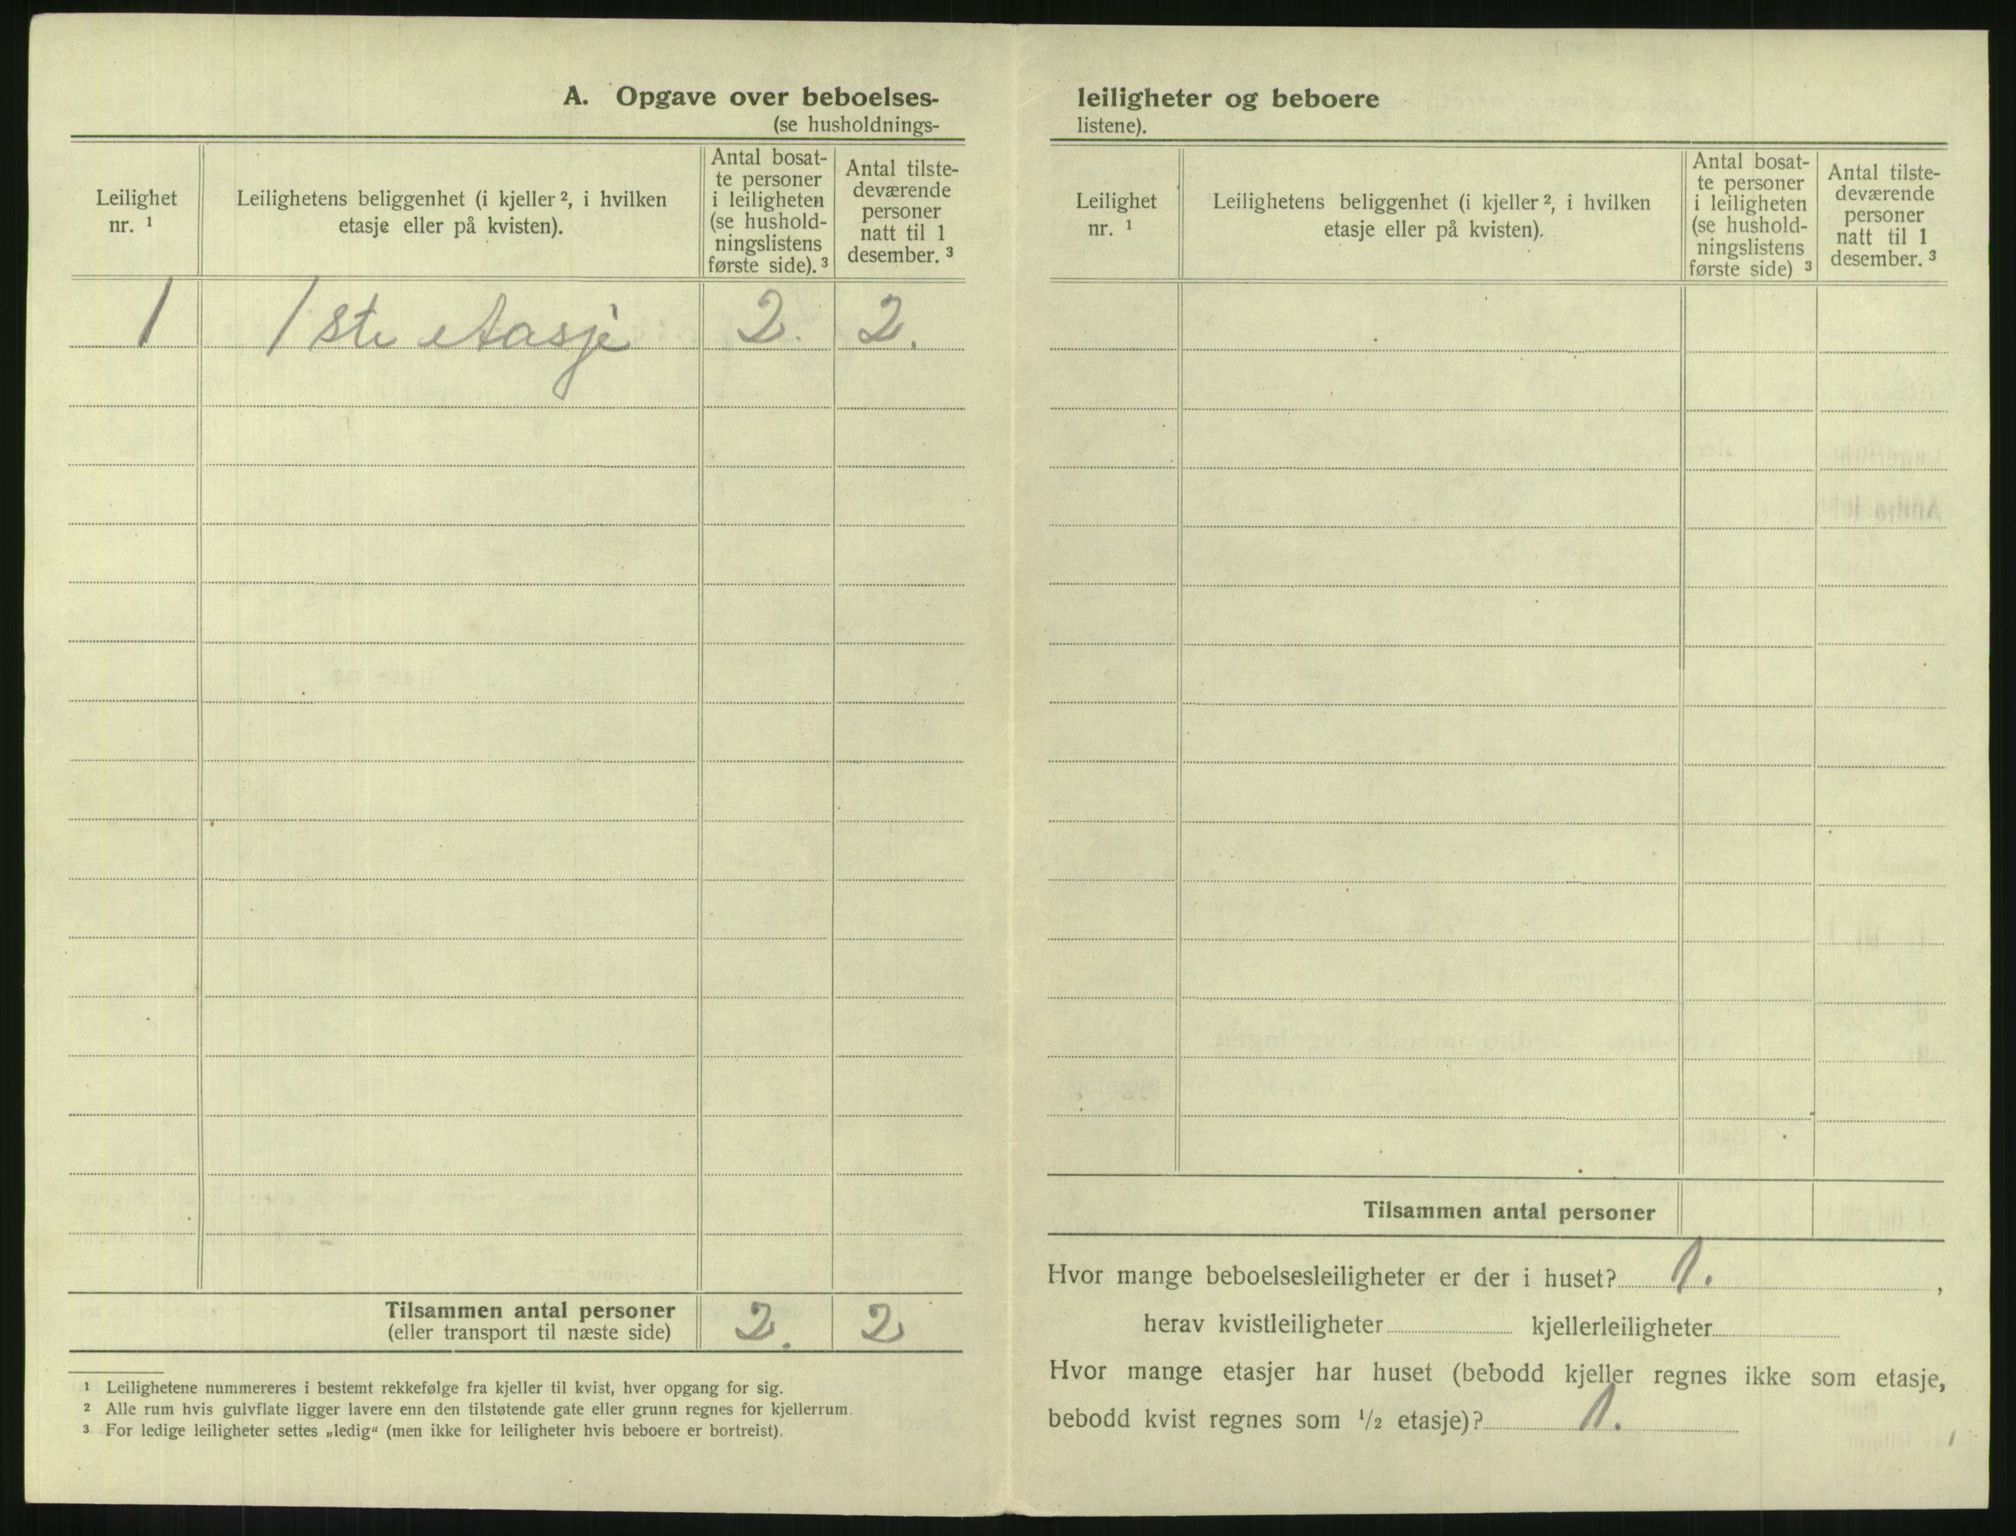 A. Opgave over beboelses-
(se husholdnings-
Leilighet
nr. 1
Leilighetens beliggenhet (i kjeller 2, i hvilken
etasje eller på kvisten).
Antal bosat-
te personer
i leiligheten
(se hushold-
ningslistens
første side). 3
Antal tilste-
deværende
personer
natt til 1
desember. 3
1 1ste etasje 2. 2.
Tilsammen antal personer
(eller transport til næste side)
2. 2
1 Leilighetene nummereres i bestemt rekkefølge fra kjeller til kvist, hver opgang for sig.
2 Alle rum hvis gulvflate ligger lavere enn den tilstøtende gate eller grunn regnes for kjellerrum.
3 For ledige leiligheter settes „ledig“ (men ikke for leiligheter hvis beboere er bortreist).
leiligheter og beboere
listene).
Leilighet
nr. 1
Leilighetens beliggenhet (i kjeller 2, i hvilken
etasje eller på kvisten).
Antal bosat-
te personer
i leiligheten
(se hushold-
ningslistens
første side) 3
Antal tilste-
deværende
personer
natt til 1
desember. 3
Tilsammen antal personer
Hvor mange beboelsesleiligheter er der i huset? 1. ,
herav kvistleiligheter kjellerleiligheter
Hvor mange etasjer har huset (bebodd kjeller regnes ikke som etasje,
bebodd kvist regnes som 1/2 etasje)? 1.